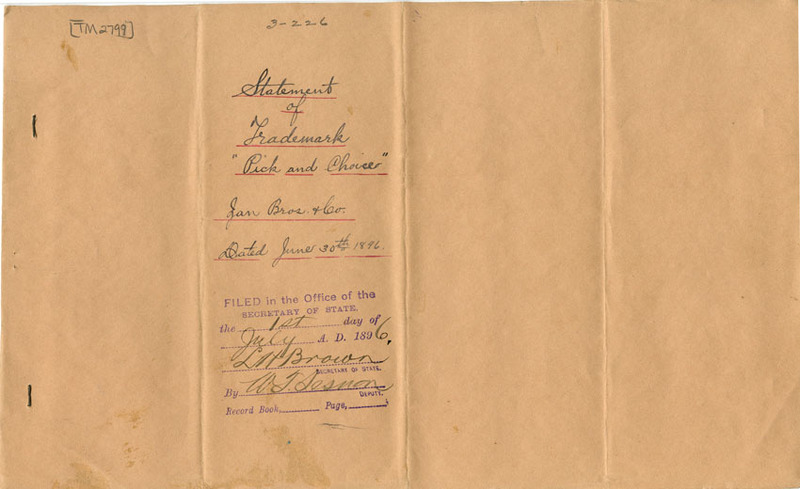 [TM2799]
3-226
Statement
of
Trademark
"Pick and Choice"
Zan Bros. & Co.
Dated June 30th 1896.
FILED in the Office of the
SECRETARY OF STATE,
the 1st day of
July A. D. 1896.
L H Brown
SECRETARY OF STATE.
By W. T. Sesnon
DEPUTY.
Record Book, Page,